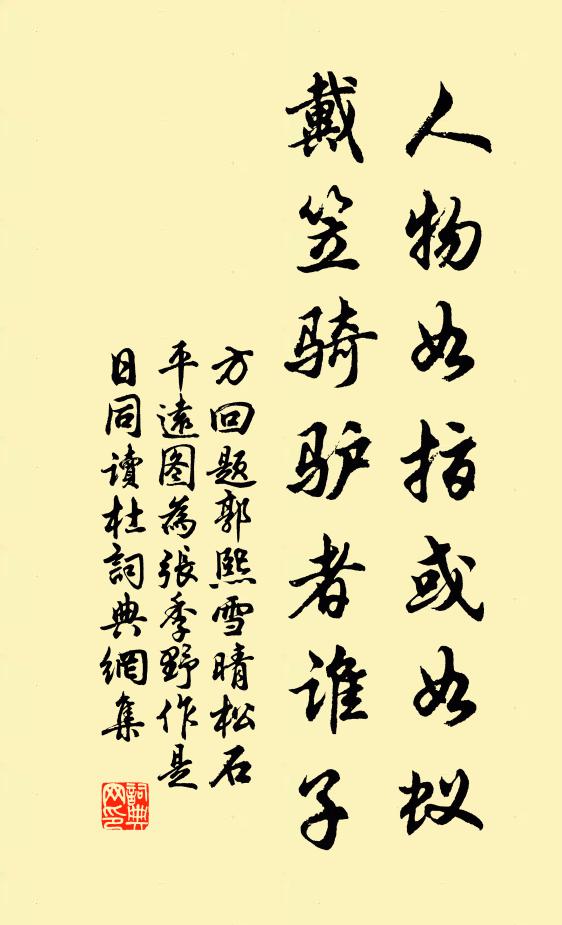 人物如指或如蚁
戴笠骑驴者谁子
方回题郭熙雪晴松石
平遠图為張季野作是
日同讀杜詞典網集
詞典网印